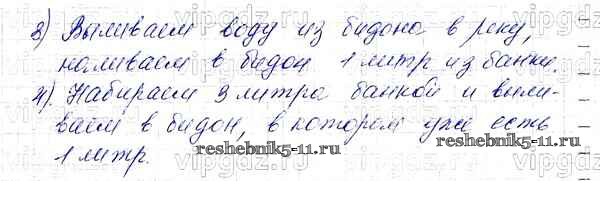 3) Выливаем воду из бидона в реку,
наливаем в бидон 1 литр из банки.
4). Набираем 3 литра банкой и выли-
ваем в бидон, в котором уже есть
1 литр.
reshebnik5-11.ru
reshebnik5-11.ru